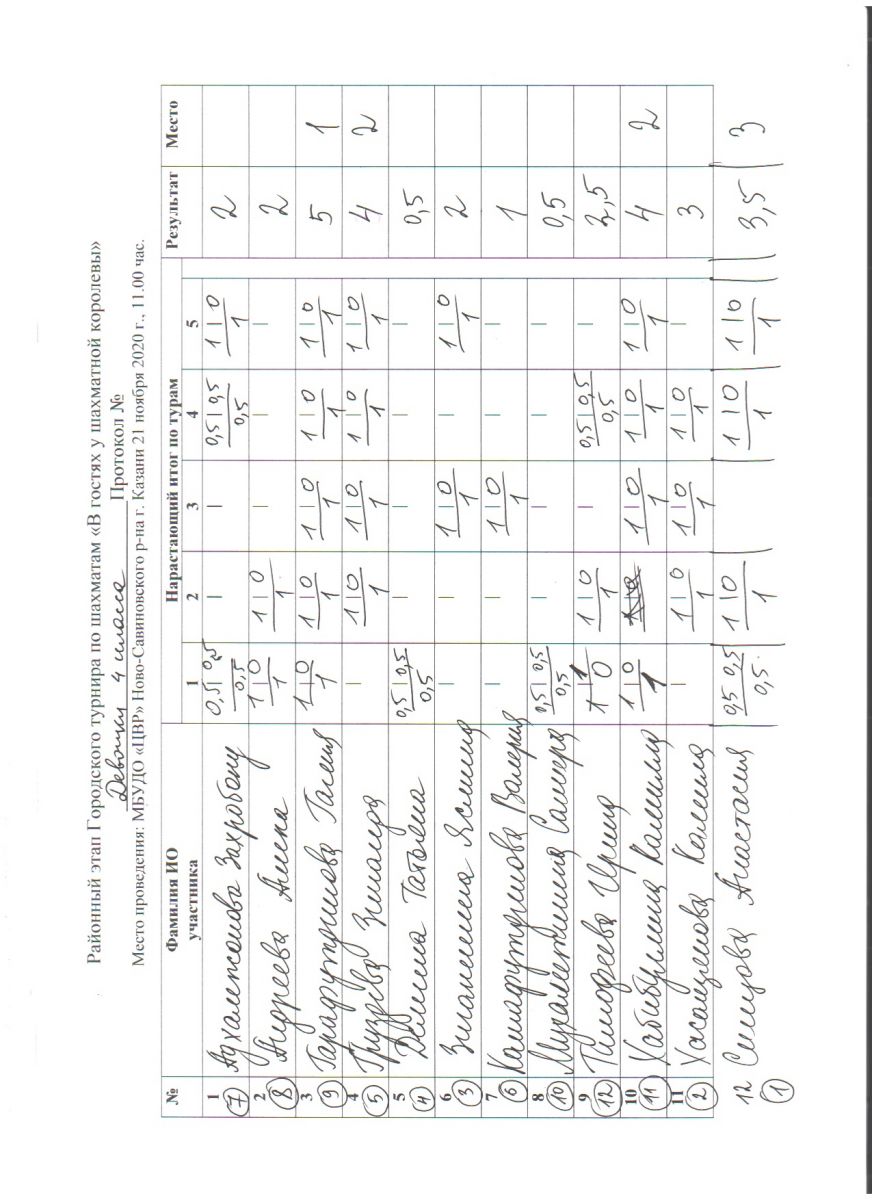 Районный этап Городского турнира по шахматам «В гостях у шахматной королевы»
Девочки 4 класс Протокол №
Место проведения: МБУДО «ЦВР» Ново-Савиновского р-на г. Казани 21 ноября 2020 г., 11.00 час.
№ Фамилия ИО участника Нарастающий итог по турам Результат Место
1 2 3 4 5
1 (7) Адхамжонова Захробону 0,5 | 0,5 0,5 — — 0,5 | 0,5 0,5 1 | 0 1 2
2 (8) Андреева Амена 1 | 0 1 1 | 0 1 — — — 2
3 (9) Гарафутдинова 1 | 0 1 1 | 0 1 1 | 0 1 1 | 0 1 1 | 0 1 5 1
4 (5) — 1 | 0 1 1 | 0 1 1 | 0 1 1 | 0 1 4 2
5 (4) Татьяна 0,5 | 0,5 0,5 — — — — 0,5
6 (3) Ясмина — — 1 | 0 1 — 1 | 0 1 2
7 (6) Камафутдинова Валерия — — 1 | 0 1 — — 1
8 (10) Мухаметшина Самира 0,5 | 0,5 0,5 — — — — 0,5
9 (12) Тимофеева Ирина 1 1 0 1 | 0 1 — 0,5 | 0,5 0,5 — 2,5
10 (11) Хабибуллина Камилла 1 | 0 1 1 | 0 1 1 | 0 1 1 | 0 1 4 2
11 (2) Хасанзянова Камила — 1 | 0 1 1 | 0 1 1 | 0 1 — 3
12 (1) Синцова Анастасия 0,5 0,5 0,5 1 | 0 1 1 | 0 1 1 | 0 1 3,5 3